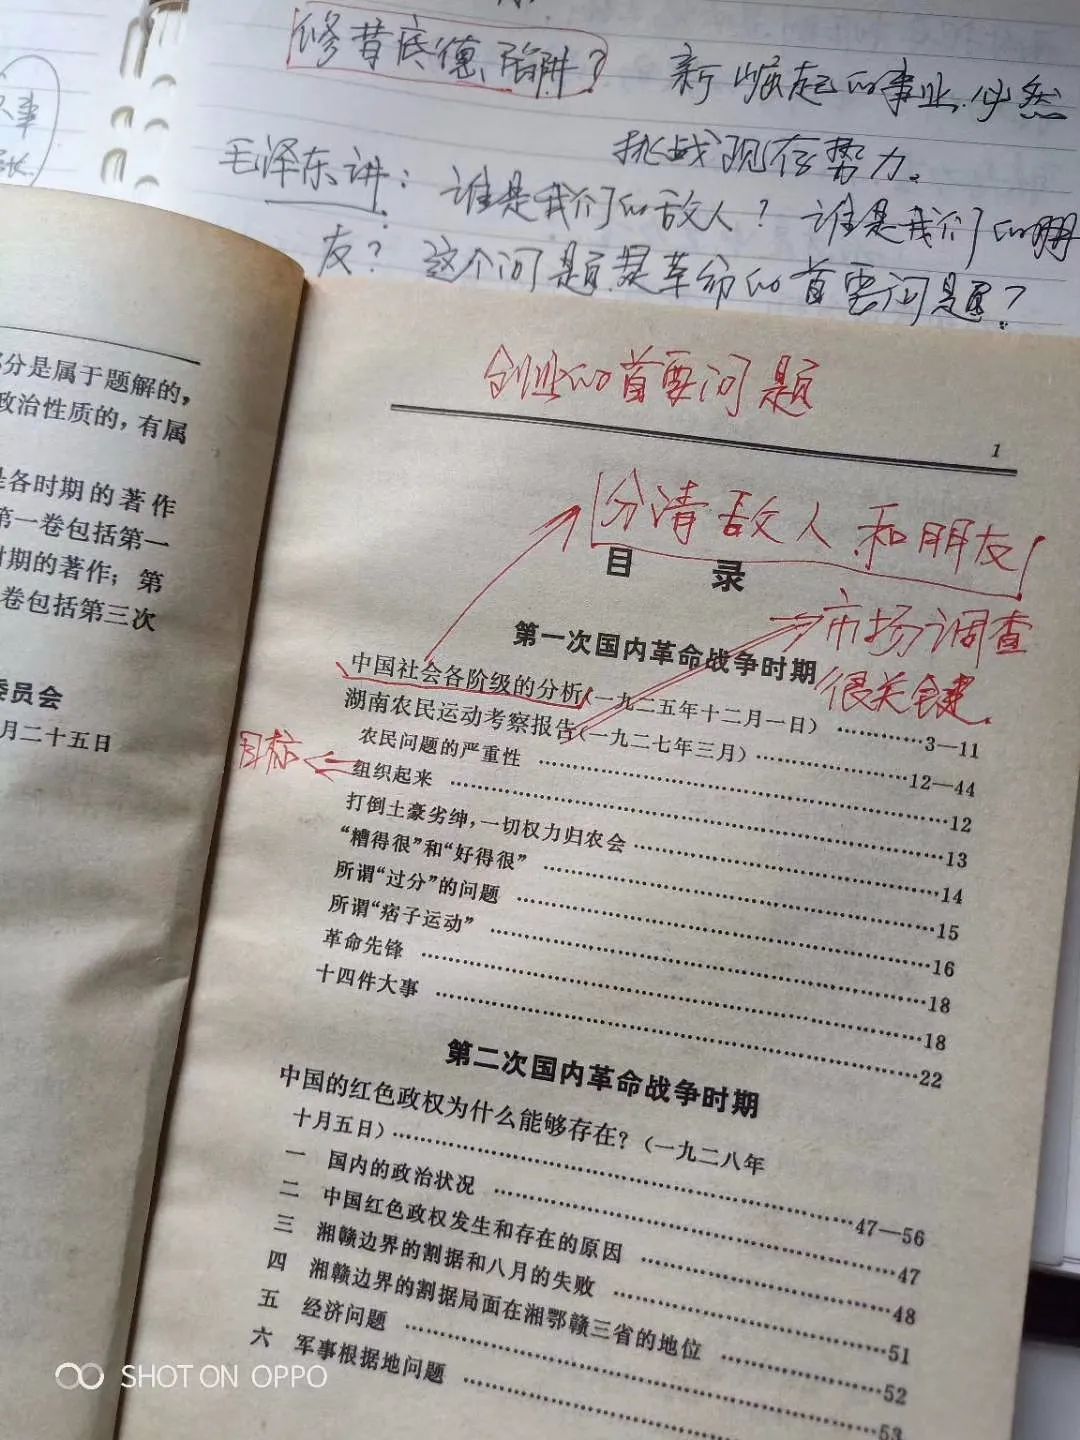 修昔底德陷阱？ 新崛起的事业,必然
挑战现存势力。
毛泽东讲：谁是我们的敌人？谁是我们的朋
友？这个问题是革命的首要问题？
部分是属于题解的，
政治性质的，有属
是各时期的著作
第一卷包括第一
时期的著作；第
卷包括第三次
委员会
月二十五日
创业的首要问题
1
分清敌人和朋友
目 录
第一次国内革命战争时期
市场调查
很关键.
中国社会各阶级的分析(一九二五年十二月一日)…………3—11
湖南农民运动考察报告(一九二七年三月)…………12—44
农民问题的严重性…………12
目标
组织起来…………13
打倒土豪劣绅，一切权力归农会…………14
“糟得很”和“好得很”…………15
所谓“过分”的问题…………16
所谓“痞子运动”…………18
革命先锋…………18
十四件大事…………22
第二次国内革命战争时期
中国的红色政权为什么能够存在？(一九二八年
十月五日)…………47—56
一 国内的政治状况…………47
二 中国红色政权发生和存在的原因…………48
三 湘赣边界的割据和八月的失败…………51
四 湘赣边界的割据局面在湘鄂赣三省的地位…………52
五 经济问题…………53
六 军事根据地问题…………
SHOT ON OPPO